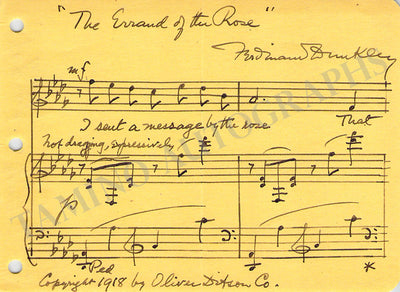 "The Errand of the Rose"
Ferdinand Dunkley
mf
I sent a message by the rose That
not dragging, expressively
Ped *
Copyright 1918 by Oliver Ditson Co.
TAMINO AUTOGRAPHS